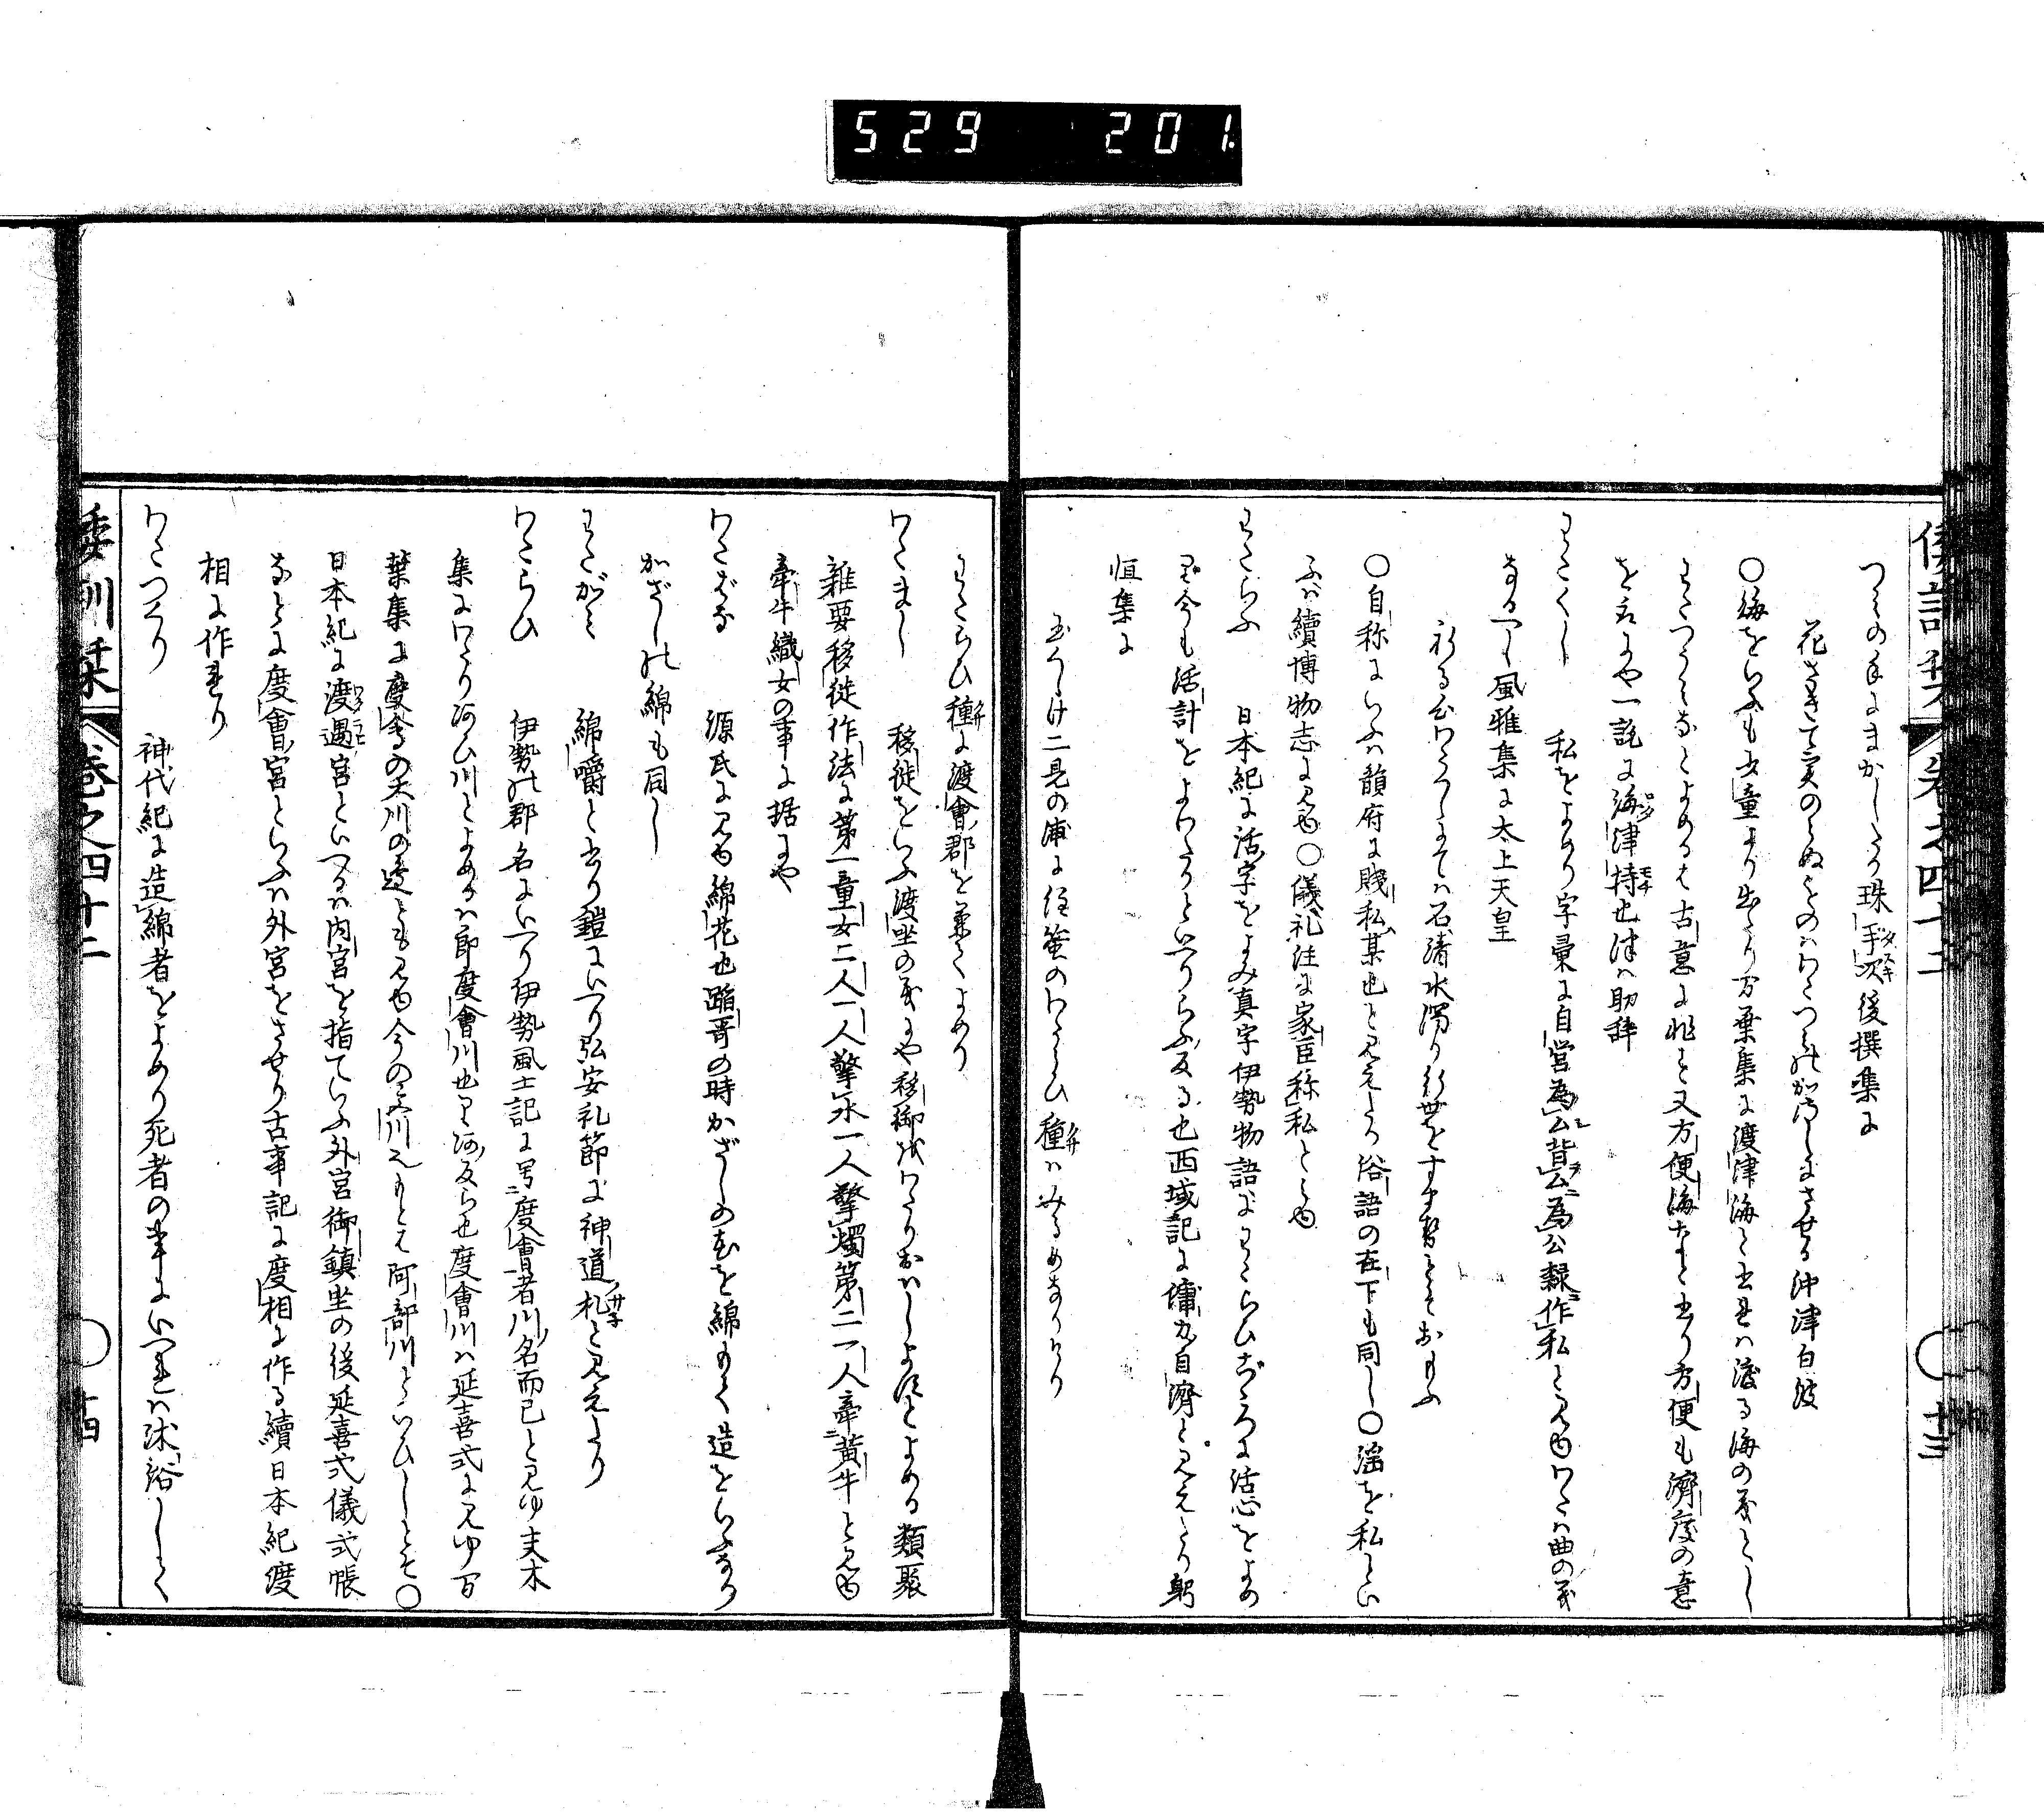 529 201.
倭訓栞 巻之四十二 ○ 十三
つみの手にまかしたる珠手次後撰集に
花さきて実のらぬものはわたつみのかさしにさせる沖津白波
○海をいふも少童より出たり万葉集に渡津海と書るは渡る海の義とし
わたつうみなとよめるは古意に非と又方便海なと書り方便も濟度の意
を云にや一説に海津持也津は助辞
わたくし 私をよめり字彙に自営為ム背ム為公隷作私と見ゆわたは曲の義
なるへし風雅集に太上天皇
祈る心わたくしにては石清水濁り行世をすませとそおもふ
○自称にいふは韻府に賤私某也と見えたり俗語の在下も同し○淫を私とい
ふは續博物志に見ゆ○儀礼注に家臣称私とみゆ
わたらふ 日本紀に活字をよみ真字伊勢物語にわたらひこゝろに活心をよめ
り今も活計をよわたりといへりらふ反る也西域記に傭力自濟と見えたり躬
恒集に
玉くしけ二見の浦に住蜑のわたらひ種はみるめなりけり
わたらひ種に渡會郡を兼てよめり
わたまし 移徙をいふ渡坐の義にや移御我わたりおはしよますとよめる類聚
雑要移徙作法に第一童女二人一人擎水一人擎燭第二一人牽黄牛と見ゆ
牽牛織女の事に据にや
わたばな 源氏に見ゆ綿花也踏哥の時かざしの花を綿もて造をいふなり
かざしの綿も同し
わたがみ 綿嚼と書り鎧にいへり弘安礼節に神道札と見えたり
わたらひ 伊勢の郡名にいへり伊勢風土記に号度會者川名而已と見ゆ夫木
集にわたり河ひ川とよめるは即度會川也り河反ら也度會川は延喜式に見ゆ万
葉集に度會の大川の邊とも見ゆ今の宮川元もとは阿部川といひしとそ○
日本紀に渡遇宮といへるは内宮を指ていふ外宮御鎮坐の後延喜式儀式帳
なとに度會宮といふは外宮をさせり古事記に度相に作る續日本紀渡
相に作れり
わたつくり 神代紀に造綿者をよめり死者の事にいへれは沐浴して
倭訓栞 巻之四十二 ○ 十四